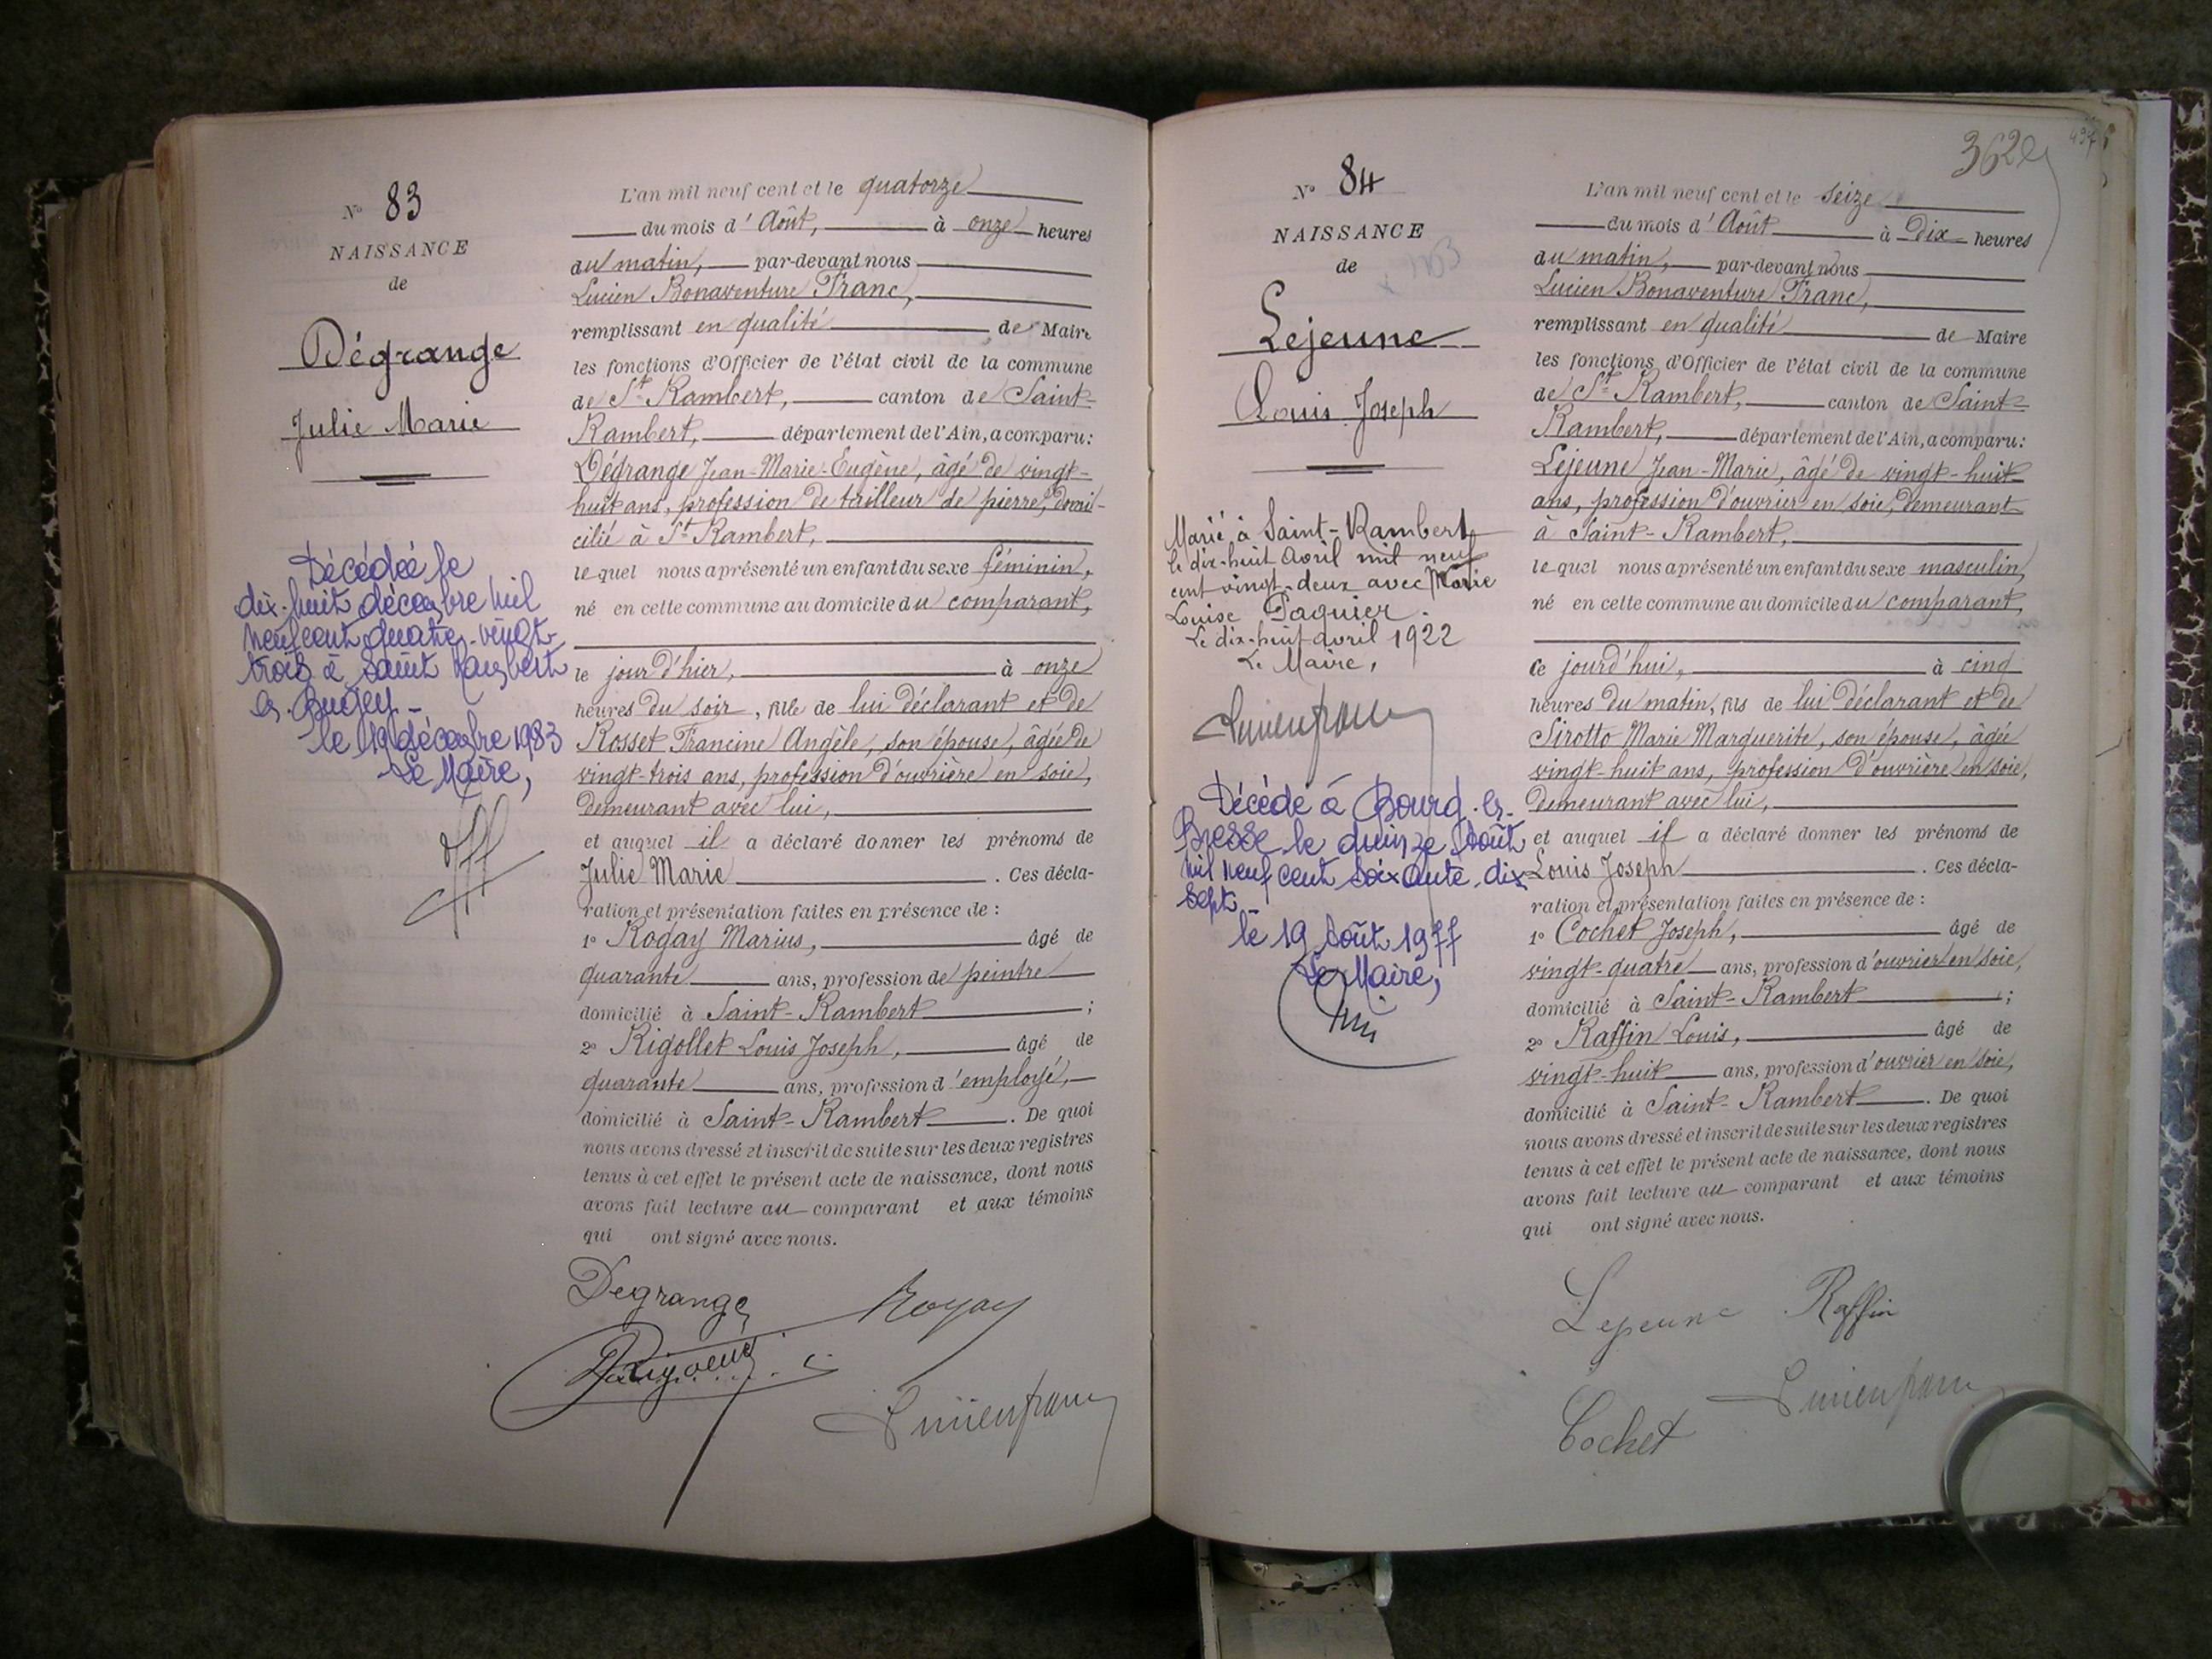 N° 83
NAISSANCE
de
Dégrange
Julie Marie
Décédée le
dix-huit décembre mil
neuf cent quatre-vingt-
trois à Saint Rambert
en Bugey -
le 19 décembre 1983
Le Maire,
L'an mil neuf cent et le quatorze
du mois d'Août, à onze heures
du matin, par-devant nous
Lucien Bonaventure Franc,
remplissant en qualité de Maire
les fonctions d'Officier de l'état civil de la commune
de St Rambert, canton de Saint-
Rambert, département de l'Ain, a comparu:
Dégrange Jean-Marie-Eugène, âgé de vingt-
huit ans, profession de tailleur de pierre, domi-
cilié à St Rambert,
lequel nous a présenté un enfant du sexe féminin,
né en cette commune au domicile du comparant,
le jour d'hier, à onze
heures du soir, fille de lui déclarant et de
Rosset Francine Angèle, son épouse, âgée de
vingt-trois ans, profession d'ouvrière en soie,
demeurant avec lui,
et auquel il a déclaré donner les prénoms de
Julie Marie. Ces décla-
ration et présentation faites en présence de :
1° Rogay Marius, âgé de
quarante ans, profession de peintre
domicilié à Saint-Rambert ;
2° Rigollet Louis Joseph, âgé de
quarante ans, profession d'employé,
domicilié à Saint-Rambert. De quoi
nous avons dressé et inscrit de suite sur les deux registres
tenus à cet effet le présent acte de naissance, dont nous
avons fait lecture au comparant et aux témoins
qui ont signé avec nous.
Degrange
Rogay
Lucien franc
362
497
N° 84
NAISSANCE
de
Lejeune
Louis Joseph
Marié à Saint-Rambert
le dix-huit avril mil neuf
cent vingt-deux avec Marie
Louise Paquier.
Le dix-huit avril 1922
Le Maire,
Lucien franc
Décédé à Bourg-en-
Bresse le quinze Août
mil neuf cent soixante-dix
sept -
le 19 Août 1977
Le Maire,
L'an mil neuf cent et le seize
du mois d'Août à dix heures
du matin, par-devant nous
Lucien Bonaventure Franc,
remplissant en qualité de Maire
les fonctions d'Officier de l'état civil de la commune
de St Rambert, canton de Saint-
Rambert, département de l'Ain, a comparu:
Lejeune Jean-Marie, âgé de vingt-huit
ans, profession d'ouvrier en soie, demeurant
à Saint-Rambert,
lequel nous a présenté un enfant du sexe masculin,
né en cette commune au domicile du comparant,
ce jourd'hui, à cinq
heures du matin, fils de lui déclarant et de
Sirotto Marie Marguerite, son épouse, âgée
vingt-huit ans, profession d'ouvrière en soie,
demeurant avec lui,
et auquel il a déclaré donner les prénoms de
Louis Joseph. Ces décla-
ration et présentation faites en présence de :
1° Cochet Joseph, âgé de
vingt-quatre ans, profession d'ouvrier en soie,
domicilié à Saint-Rambert ;
2° Raffin Louis, âgé de
vingt-huit ans, profession d'ouvrier en soie,
domicilié à Saint-Rambert. De quoi
nous avons dressé et inscrit de suite sur les deux registres
tenus à cet effet le présent acte de naissance, dont nous
avons fait lecture au comparant et aux témoins
qui ont signé avec nous.
Lejeune Raffin
Cochet Lucien franc